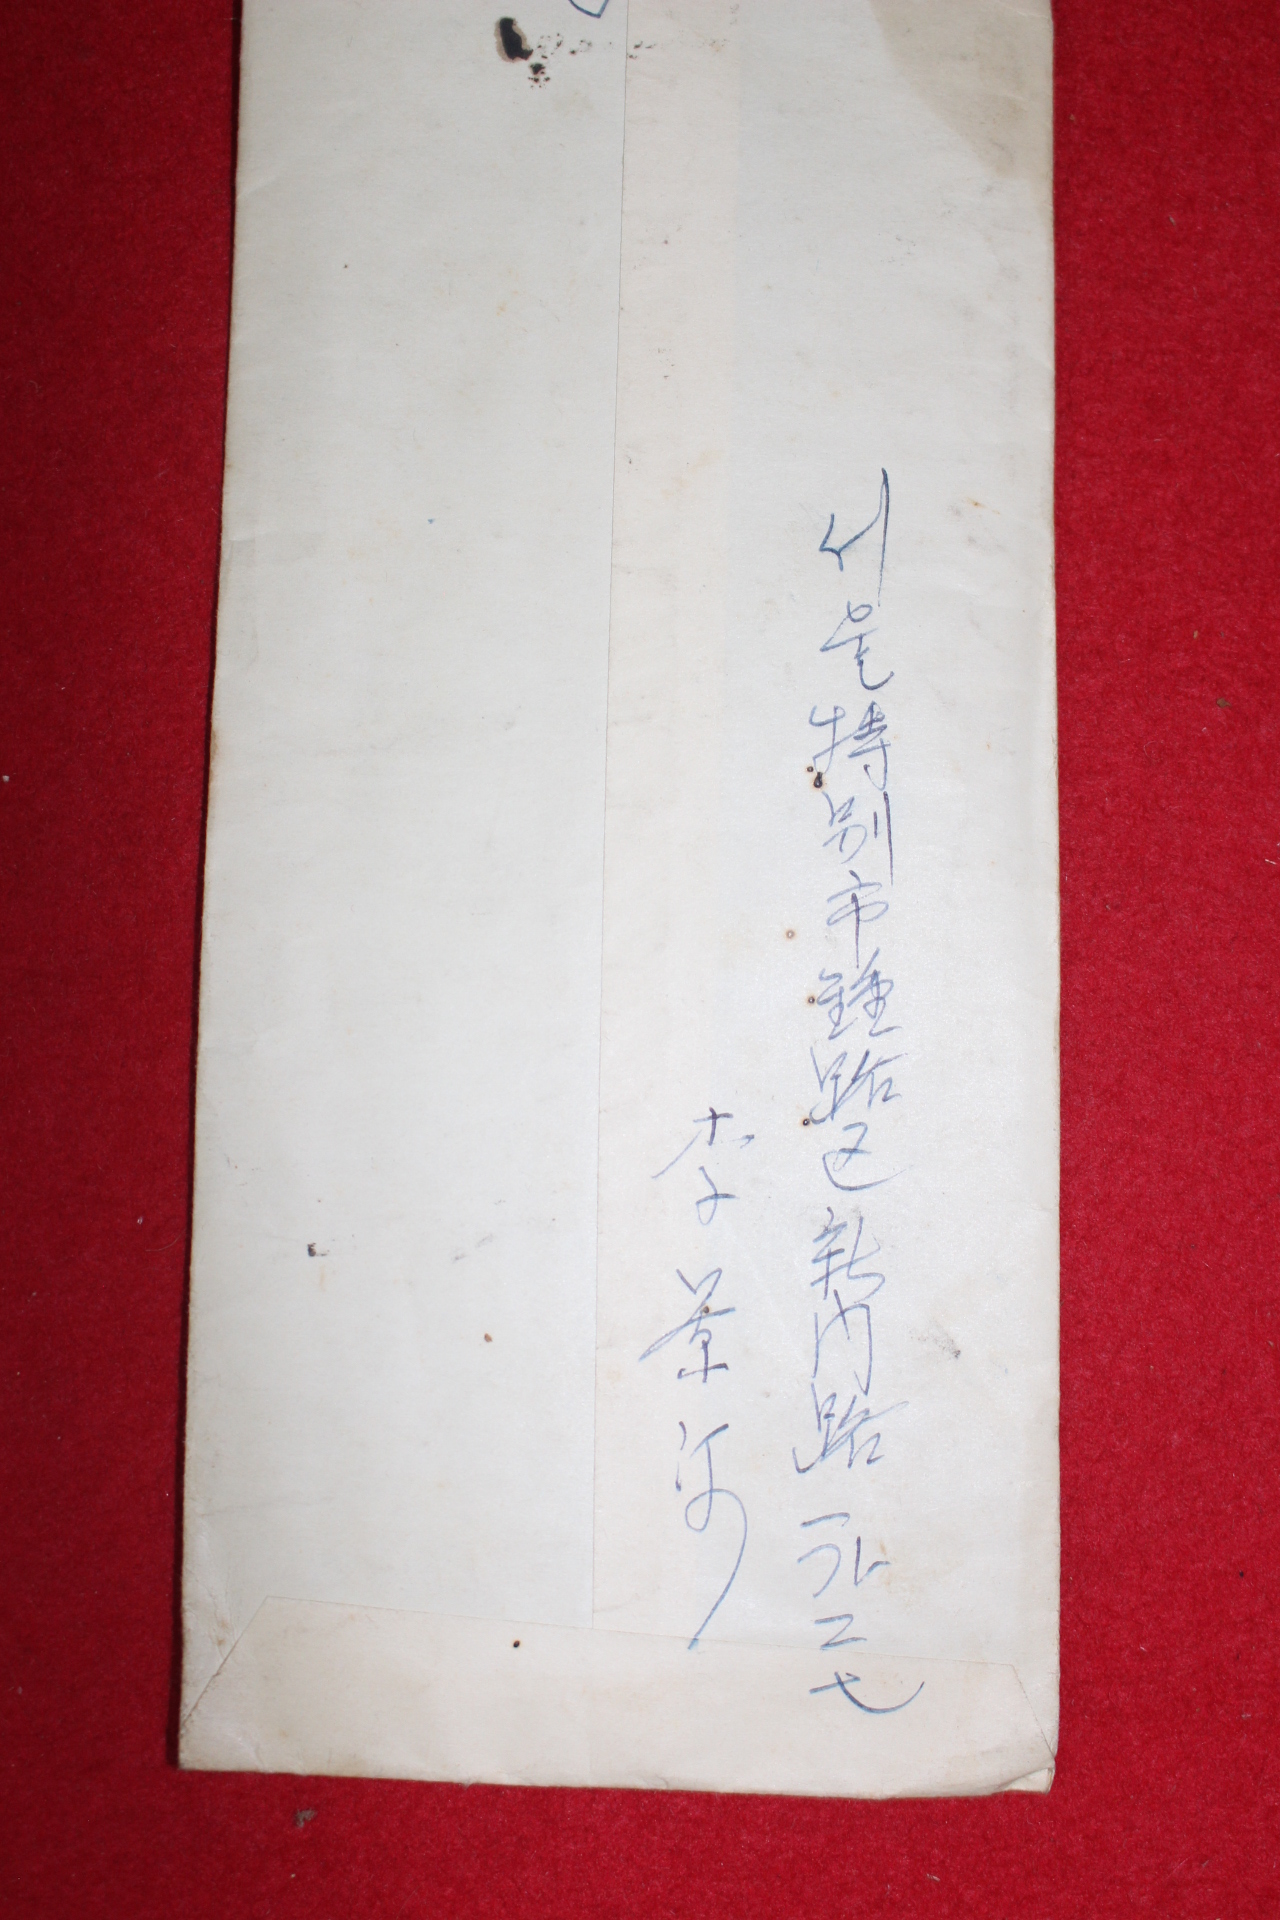 서울特別市鍾路区新门路一가二七
李景河